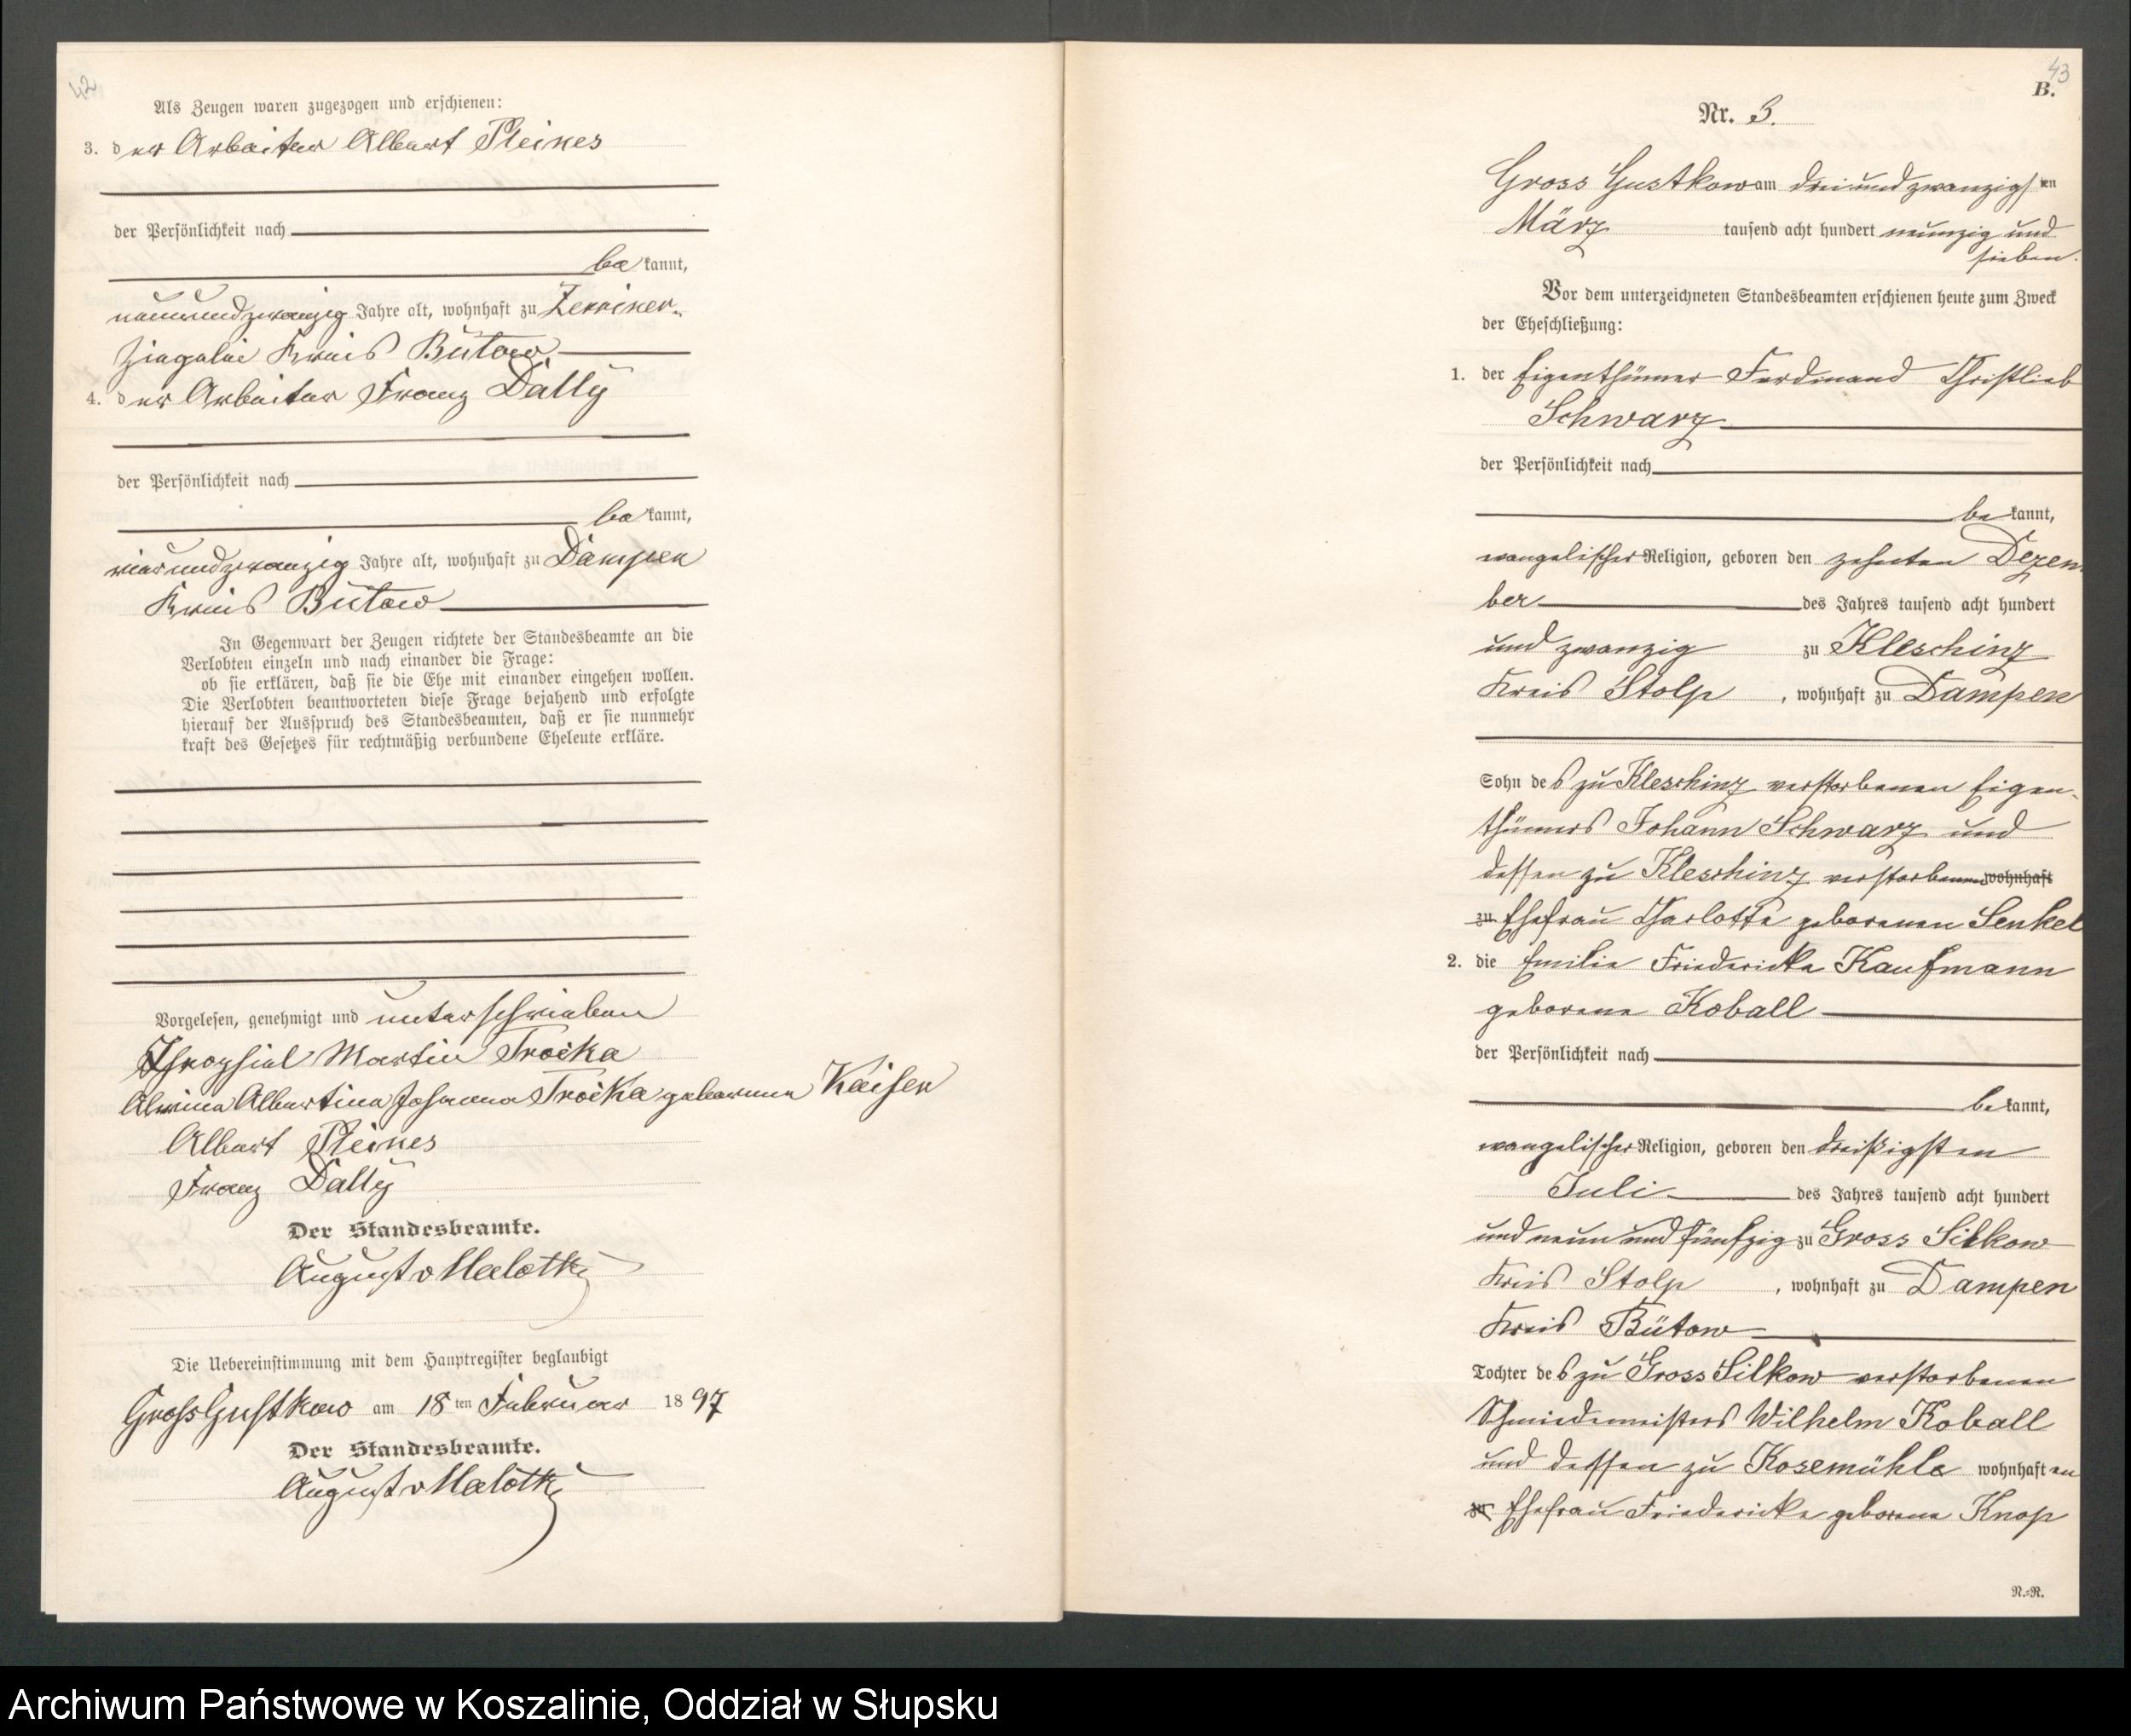 42
Als Zeugen waren zugezogen und erschienen:
3. der Arbeiter Albert Pleines
der Persönlichkeit nach
bekannt,
neunundzwanzig Jahre alt, wohnhaft zu Zerriner-
Ziegelei Kreis Bütow
4. der Arbeiter Franz Dally
der Persönlichkeit nach
bekannt,
vierundzwanzig Jahre alt, wohnhaft zu Dampen
Kreis Bütow
In Gegenwart der Zeugen richtete der Standesbeamte an die
Verlobten einzeln und nach einander die Frage:
ob sie erklären, daß sie die Ehe mit einander eingehen wollen.
Die Verlobten beantworteten diese Frage bejahend und erfolgte
hierauf der Ausspruch des Standesbeamten, daß er sie nunmehr
kraft des Gesetzes für rechtmäßig verbundene Eheleute erkläre.
Vorgelesen, genehmigt und unterschrieben
Martin Troika
Albertina Johanna Troika geborene Kaiser
Albert Pleines
Franz Dally
Der Standesbeamte.
August v Malottki
Die Uebereinstimmung mit dem Hauptregister beglaubigt
Gross Gustkow am 18ten Februar 1897
Der Standesbeamte.
August v Malottki
43
B.
Nr. 3.
Gross Gustkow am dreiundzwanzigsten
März tausend acht hundert neunzig und
sieben.
Vor dem unterzeichneten Standesbeamten erschienen heute zum Zweck
der Eheschließung:
1. der Eigenthümer Ferdinand Christlieb
Schwarz
der Persönlichkeit nach
bekannt,
evangelischer Religion, geboren den zehnten Dezem-
ber des Jahres tausend acht hundert
und zwanzig zu Kleschinz
Kreis Stolp, wohnhaft zu Dampen
Sohn des zu Kleschinz verstorbenen Eigen-
thümers Johann Schwarz und
dessen zu Kleschinz verstorbenen wohnhaft
zu Ehefrau Charlotte geborenen Senkel
2. die Emilie Friedericke Kaufmann
geborene Koball
der Persönlichkeit nach
bekannt,
evangelischer Religion, geboren den dreißigsten
Juli des Jahres tausend acht hundert
und neun und fünfzig zu Gross Silkow
Kreis Stolp, wohnhaft zu Dampen
Kreis Bütow
Tochter des zu Gross Silkow verstorbenen
Schmiedemeisters Wilhelm Koball
und dessen zu Kosemühle wohnhaften
zu Ehefrau Friedericke geborene Knop
N.-R.
Archiwum Państwowe w Koszalinie, Oddział w Słupsku